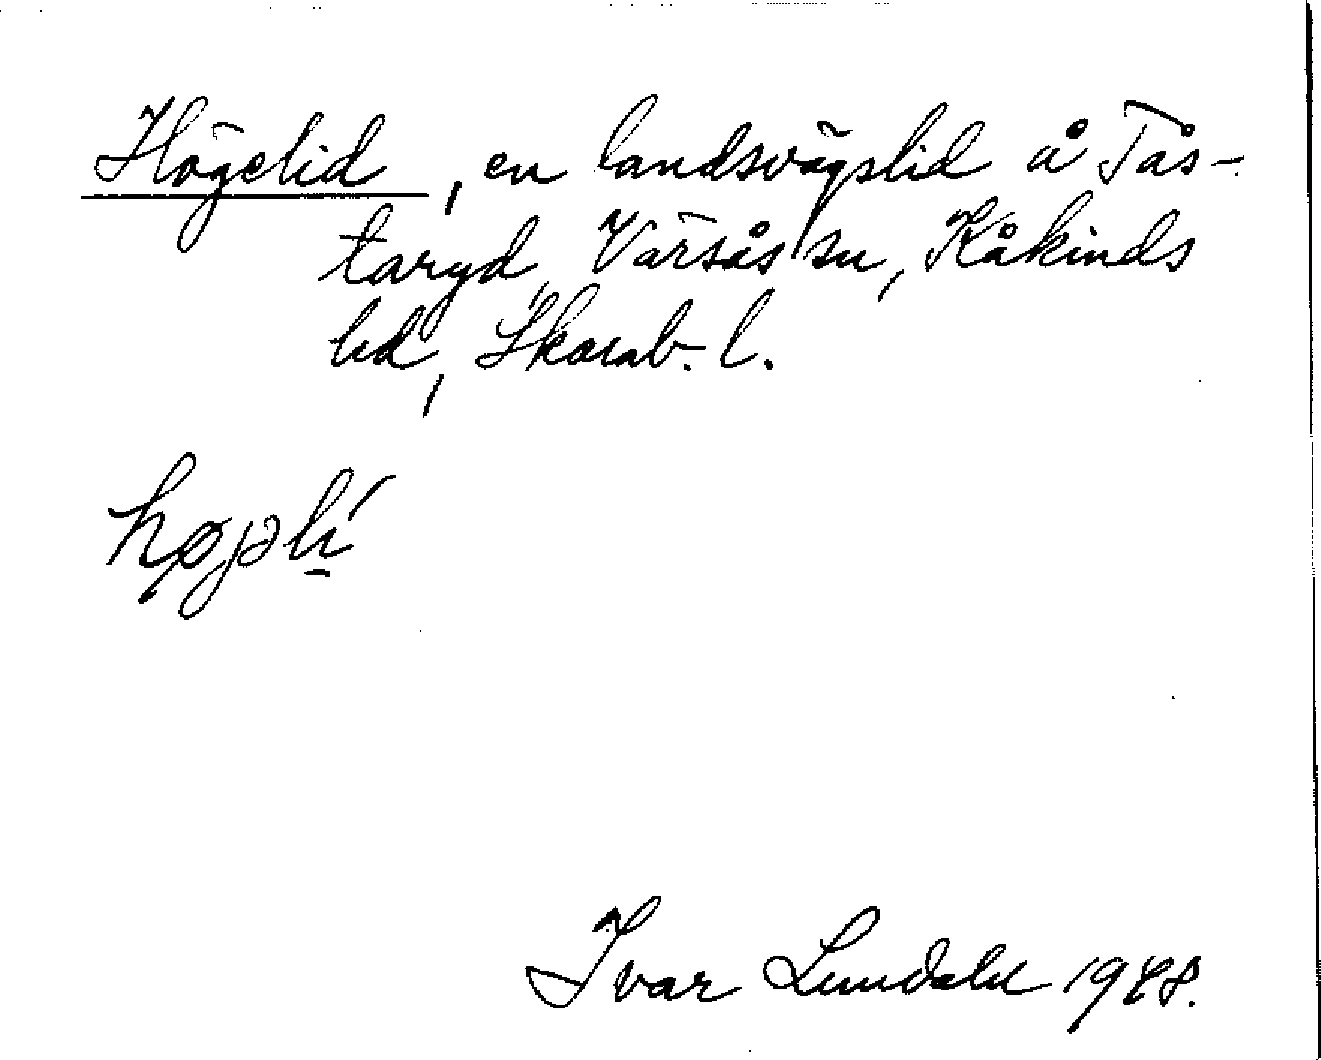 Högelid, en landsvägslid å Tås-
taryd, Värsås sn, Kåkinds
hd, Skarab. l.
højəli
Ivar Lundahl 1948.